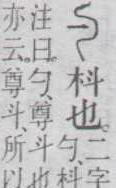 枓也。
二字
勺、枓
注曰。勺、尊斗也
亦云。尊斗、所以